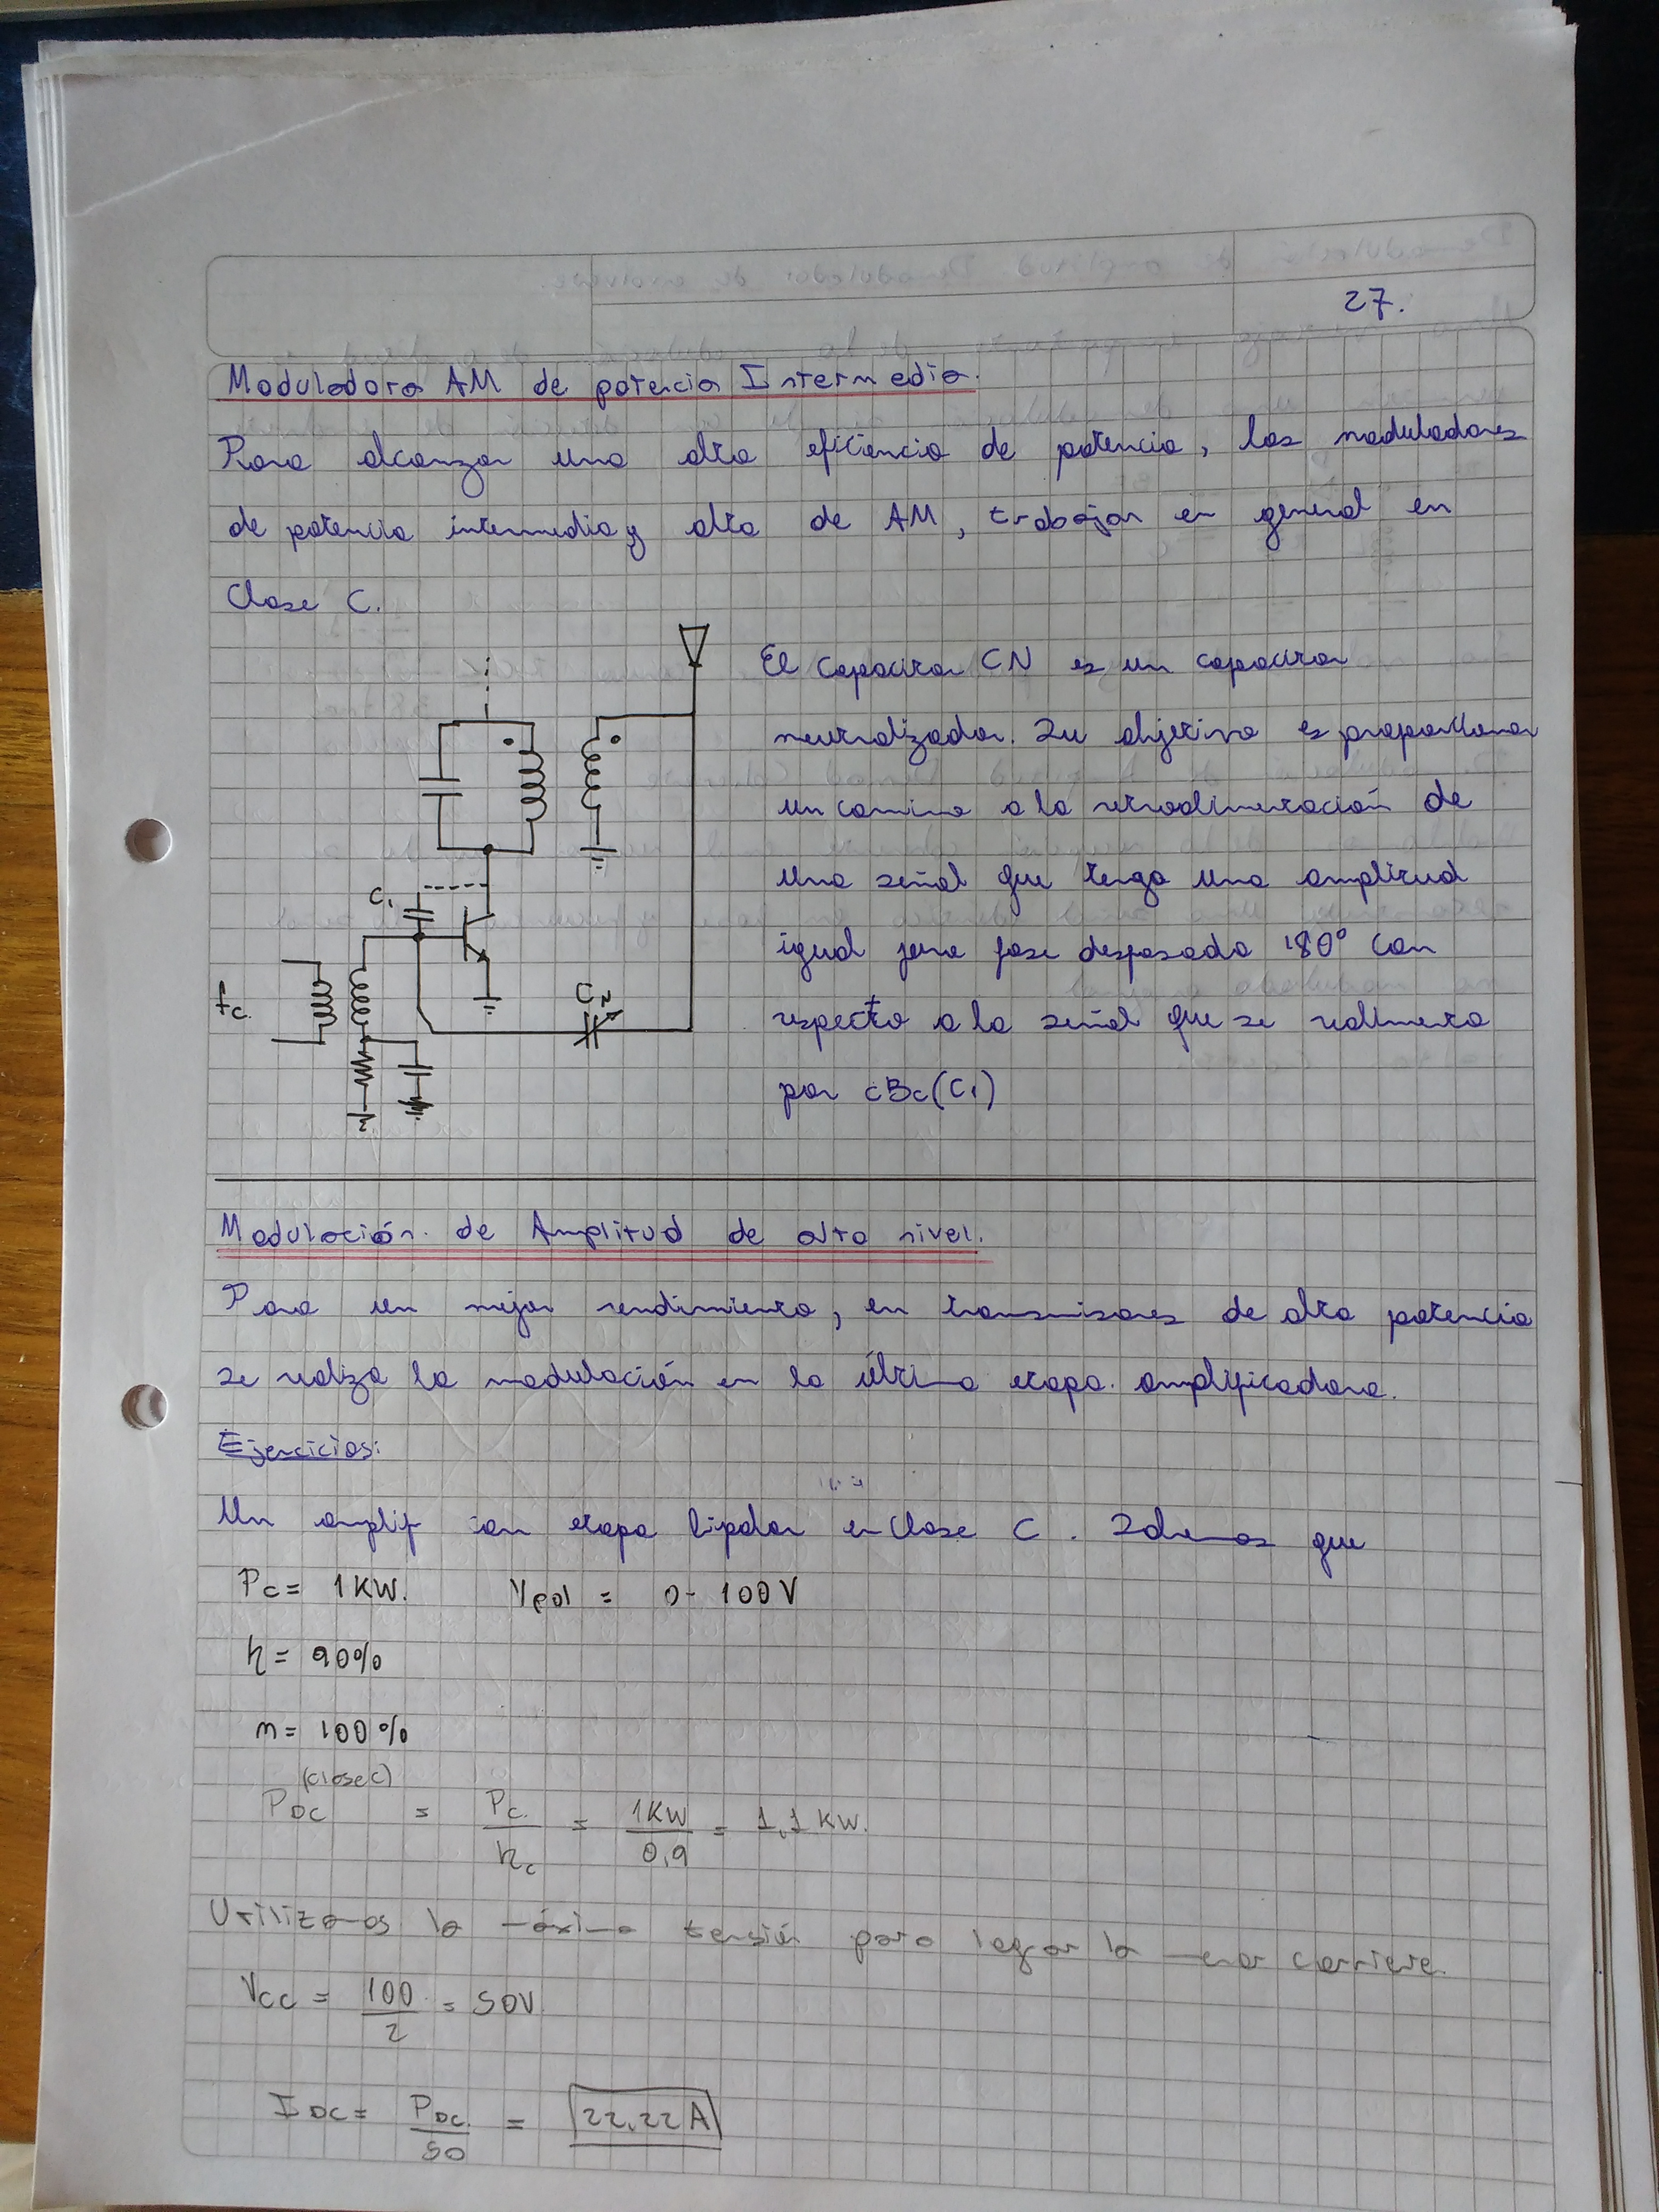 27.
Moduladora AM de potencia Intermedia.
Para alcanzar una alta eficiencia de potencia, los moduladores
de potencia intermedia y alta de AM, trabajan en general en
Clase C.
El capacitor CN es un capacitor
neutralizador. Su objetivo es proporcionar
un camino a la retroalimentación de
una señal que tenga una amplitud
igual y una fase desfasada 180° con
respecto a la señal que se realimenta
por CBC (C1)
C1
C2
fc.
Modulación de Amplitud de alto nivel.
Para un mejor rendimiento, en transmisores de alta potencia
se realiza la modulación en la última etapa amplificadora.
Ejercicios:
Un amplif con etapa bipolar en Clase C. Sabemos que
Pc = 1KW. Vpol = 0 - 100V
η = 90%
m = 100%
(clase C)
PDC = Pc / ηc = 1KW / 0,9 = 1,1 KW.
Utilizamos la máxima tensión para lograr la menor corriente.
VCC = 100 / 2 = 50V
IDC = PDC / 50 = 22,22 A